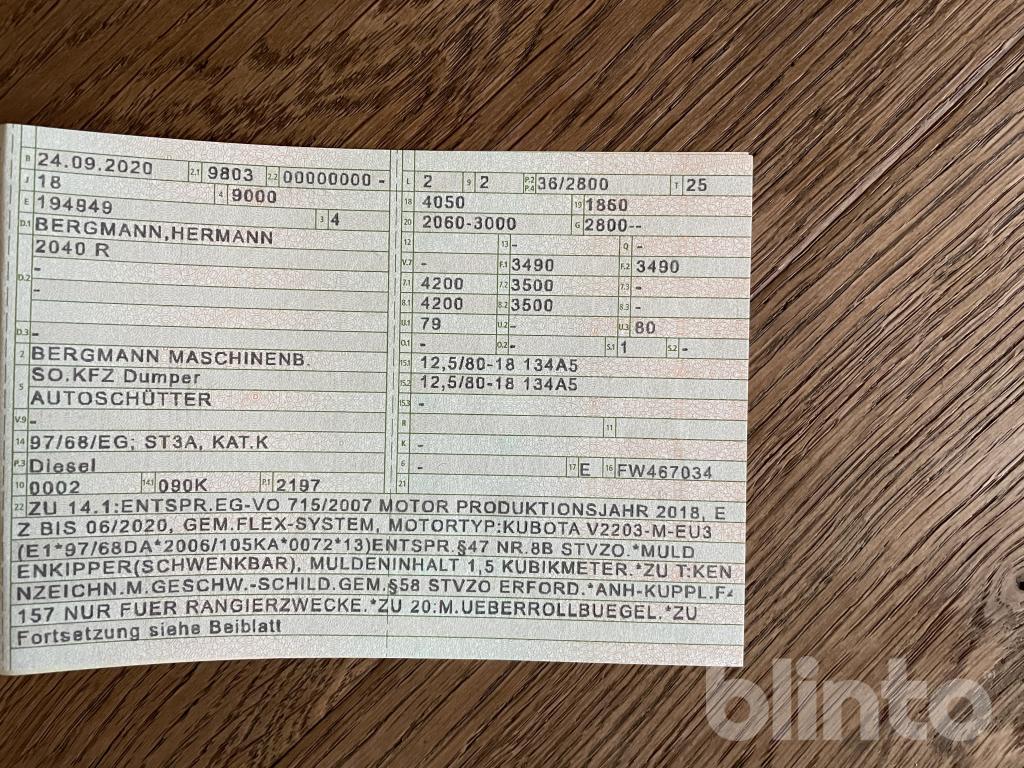 B 24.09.2020 2.1 9803 2.2 00000000 -
J 18 4 9000
E 194949 3 4
D.1 BERGMANN,HERMANN
2040 R
D.2 -
-
D.3 -
2 BERGMANN MASCHINENB.
5 SO.KFZ Dumper
AUTOSCHÜTTER
V.9 -
14 97/68/EG; ST3A, KAT.K
P.3 Diesel
10 0002 14.1 090K P.1 2197
L 2 9 2 P.2 P.4 36/2800 T 25
18 4050 19 1860
20 2060-3000 G 2800--
12 13 - Q -
V.7 - F.1 3490 F.2 3490
7.1 4200 7.2 3500 7.3 -
8.1 4200 8.2 3500 8.3 -
U.1 79 U.2 - U.3 80
O.1 - O.2 - S.1 1 S.2 -
15.1 12,5/80-18 134A5
15.2 12,5/80-18 134A5
15.3 -
R 11
K -
6 - 17 E 16 FW467034
21
22 ZU 14.1:ENTSPR.EG-VO 715/2007 MOTOR PRODUKTIONSJAHR 2018, E
Z BIS 06/2020, GEM.FLEX-SYSTEM, MOTORTYP:KUBOTA V2203-M-EU3
(E1*97/68DA*2006/105KA*0072*13)ENTSPR.§47 NR.8B STVZO.*MULD
ENKIPPER(SCHWENKBAR), MULDENINHALT 1,5 KUBIKMETER.*ZU T:KEN
NZEICHN.M.GESCHW.-SCHILD.GEM.§58 STVZO ERFORD.*ANH-KUPPL.F
157 NUR FUER RANGIERZWECKE.*ZU 20:M.UEBERROLLBUEGEL.*ZU
Fortsetzung siehe Beiblatt
blinto